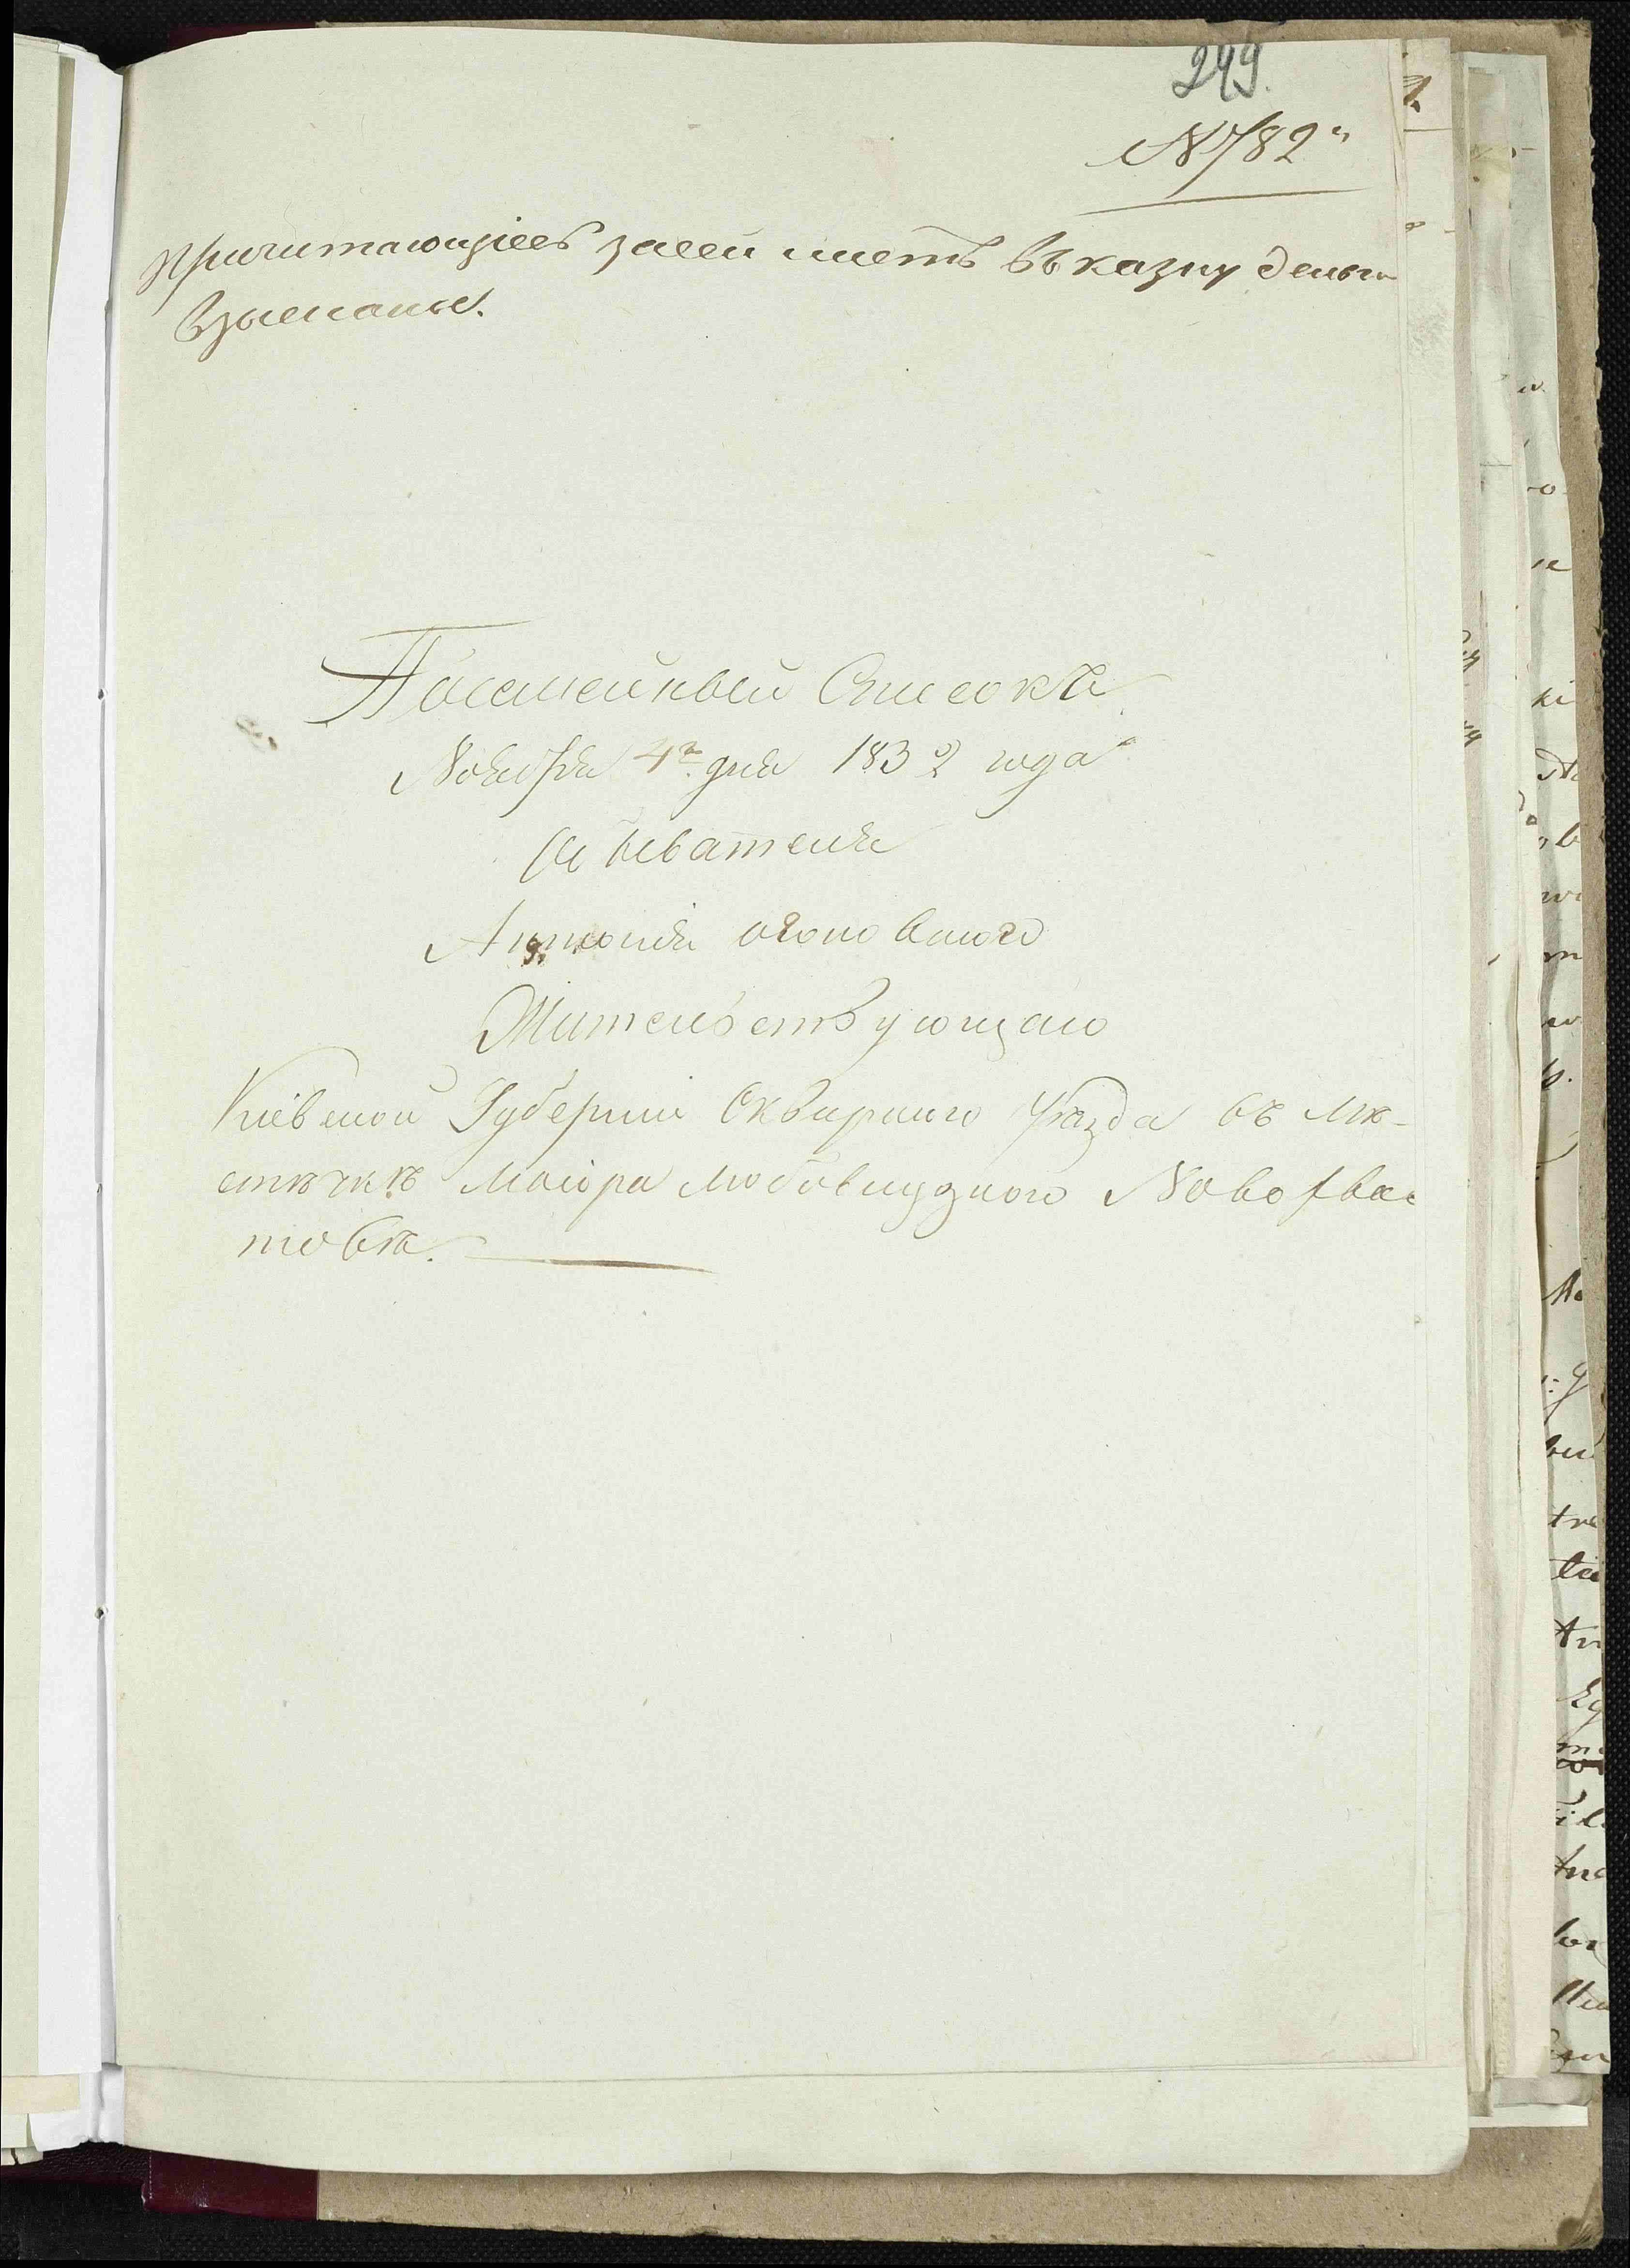 249.
N 782й
причитающіесь засей листъ въ казну деньги
взысканы.
Посемейный Списокъ
Ноября 4го дня 1832 года
обывателя
Антонія
Жительствующаго
Кіевской Губерніи Сквирскаго Уѣзда въ мѣ-
стѣчкѣ Маіора Любовицкаго Новофвас
товѣ.